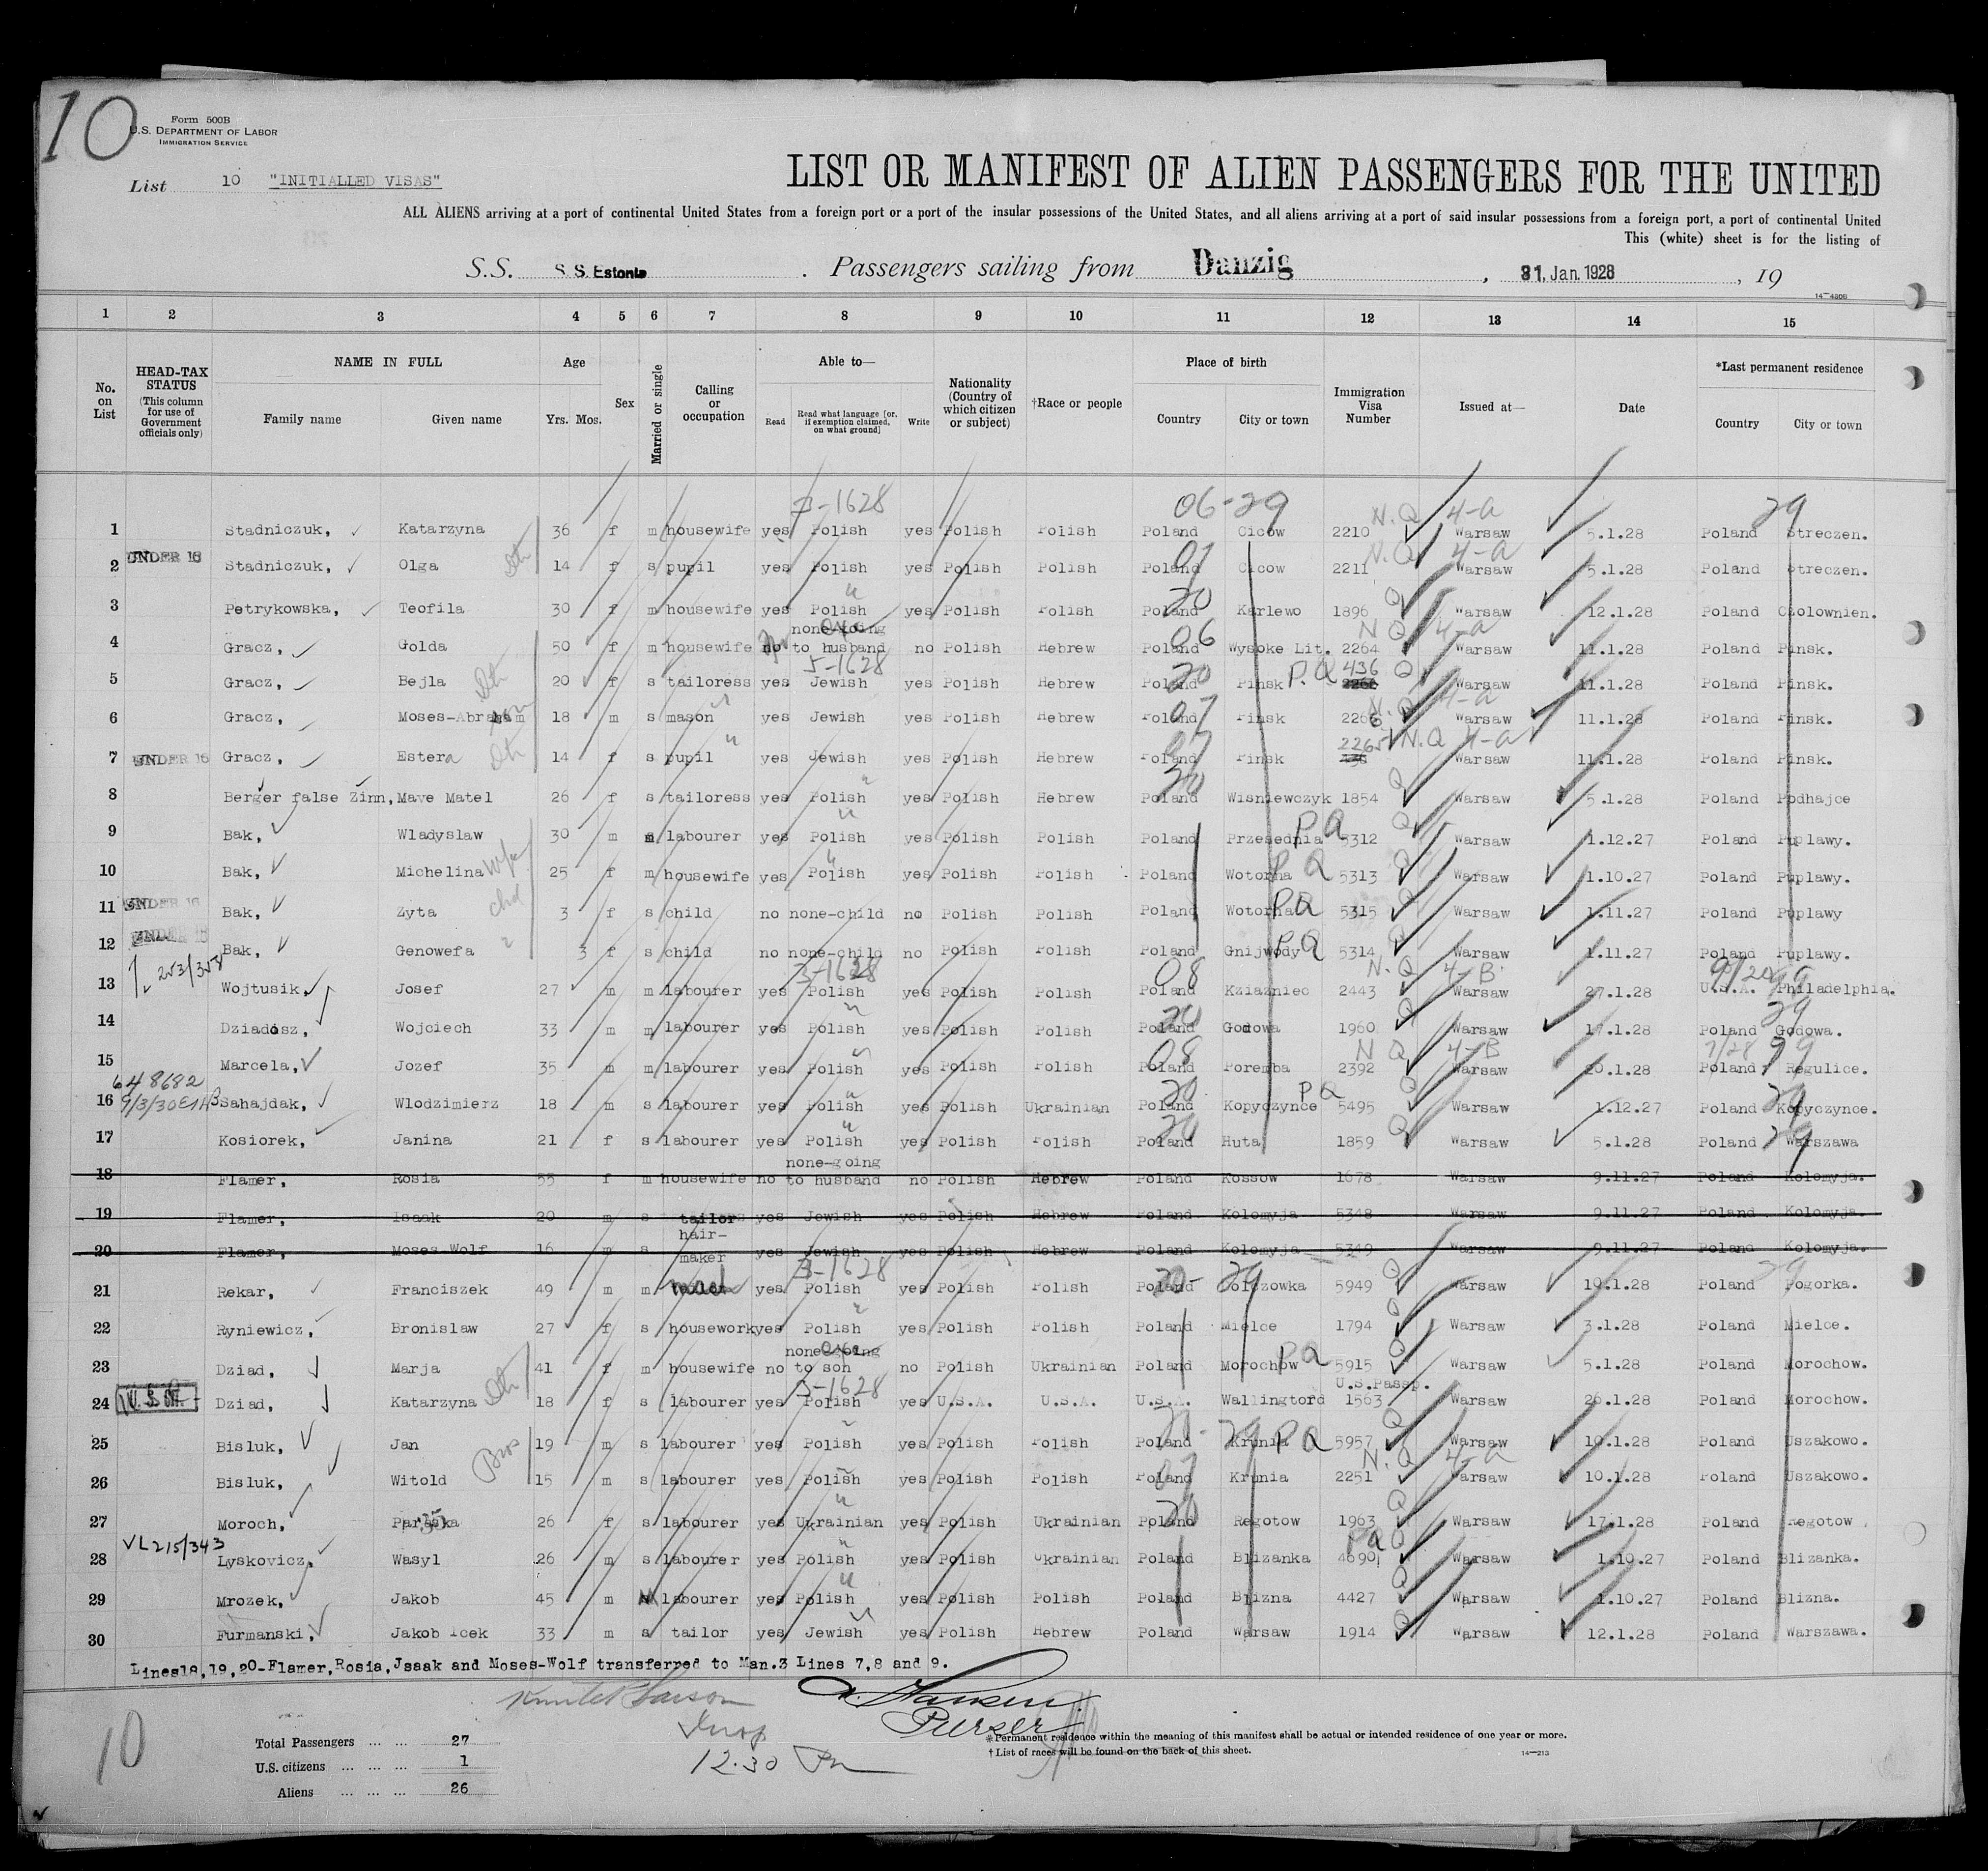 10
Form 500B
U.S. DEPARTMENT OF LABOR
IMMIGRATION SERVICE
List 10 "INITIALLED VISAS"
LIST OR MANIFEST OF ALIEN PASSENGERS FOR THE UNITED
ALL ALIENS arriving at a port of continental United States from a foreign port or a port of the insular possessions of the United States, and all aliens arriving at a port of said insular possessions from a foreign port, a port of continental United
This (white) sheet is for the listing of
S.S. S.S. Estonia . Passengers sailing from Danzig , 31, Jan. 1928 , 19
14—450B
1 2 3 4 5 6 7 8 9 10 11 12 13 14 15
No. on List
HEAD-TAX STATUS (This column for use of Government officials only)
NAME IN FULL Family name Given name
Age Yrs. Mos.
Sex
Married or single
Calling or occupation
Able to— Read Read what language [or, if exemption claimed, on what ground] Write
Nationality (Country of which citizen or subject)
†Race or people
Place of birth Country City or town
Immigration Visa Number
Issued at—
Date
*Last permanent residence Country City or town
3-1628 06-29 N.Q 4-a 29
1 Stadniczuk, Katarzyna 36 f m housewife yes Polish yes Polish Polish Poland Cicow 2210 Warsaw 5.1.28 Poland Streczen.
UNDER 16 Dth 07 N.Q 4-a
2 Stadniczuk, Olga 14 f s pupil yes Polish yes Polish Polish Poland Cicow 2211 Warsaw 5.1.28 Poland Streczen.
20 Q
3 Petrykowska, Teofila 30 f m housewife yes Polish yes Polish Polish Poland Karlewo 1896 Warsaw 12.1.28 Poland Czolownien.
none-going 06 N Q 4-a
4 Gracz, Golda 50 f m housewife no to husband no Polish Hebrew Poland Wysoke Lit. 2264 Warsaw 11.1.28 Poland Pinsk.
5-1628 20 P.Q 436 Q
5 Gracz, Bejla Dth 20 f s tailoress yes Jewish yes Polish Hebrew Poland Pinsk Warsaw 11.1.28 Poland Pinsk.
07 N.Q 4-a
6 Gracz, Moses-Abraham son 18 m s mason yes Jewish yes Polish Hebrew Poland Pinsk 2266 Warsaw 11.1.28 Poland Pinsk.
07 2265 N.Q 4-a
7 UNDER 16 Gracz, Estera Dth 14 f s pupil yes Jewish yes Polish Hebrew Poland Pinsk Warsaw 11.1.28 Poland Pinsk.
20 Q
8 Berger false Zinn, Mave Matel 26 f s tailoress yes Polish yes Polish Hebrew Poland Wisniewczyk 1854 Warsaw 5.1.28 Poland Podhajce
9 Bak, Wladyslaw 30 m m labourer yes Polish yes Polish Polish Poland Przesednia PQ 5312 Q Warsaw 1.12.27 Poland Puplawy.
10 Bak, Michelina Wife 25 f m housewife yes Polish yes Polish Polish Poland Wotorna PQ 5313 Q Warsaw 1.10.27 Poland Puplawy.
11 UNDER 16 Bak, Zyta chd 3 f s child no none-child no Polish Polish Poland Wotorna PQ 5315 Q Warsaw 1.11.27 Poland Puplawy
12 UNDER 16 Bak, Genowefa 3 f s child no none-child no Polish Polish Poland Gnijwody PQ 5314 Q Warsaw 1.11.27 Poland Puplawy.
253/358 3-1628 08 N.Q 4-B
13 Wojtusik, Josef 27 m m labourer yes Polish yes Polish Polish Poland Kziazniec 2443 Warsaw 27.1.28 U.S.A. Philadelphia.
20 Q 29
14 Dziadosz, Wojciech 33 m m labourer yes Polish yes Polish Polish Poland Godowa 1960 Warsaw 17.1.28 Poland Godowa.
08 N Q 4-B 7/28 99
15 Marcela, Jozef 35 m m labourer yes Polish yes Polish Polish Poland Poremba 2392 Warsaw 20.1.28 Poland Regulice.
648682 20 PQ Q 29
16 Sahajdak, Wlodzimierz 18 m s labourer yes Polish yes Polish Ukrainian Poland Kopyczynce 5495 Warsaw 1.12.27 Poland Kopyczynce.
20 Q 29
17 Kosiorek, Janina 21 f s labourer yes Polish yes Polish Polish Poland Huta 1859 Warsaw 5.1.28 Poland Warszawa
none-going
18 Flamer, Rosia 55 f m housewife no to husband no Polish Hebrew Poland Kossow 1678 Warsaw 9.11.27 Poland Kolomyja.
19 Flamer, Isaak 20 m s tailor yes Jewish yes Polish Hebrew Poland Kolomyja 5348 Warsaw 9.11.27 Poland Kolomyja.
hair-
20 Flamer, Moses-Wolf 16 m s maker yes Jewish yes Polish Hebrew Poland Kolomyja 5349 Warsaw 9.11.27 Poland Kolomyja.
3-1628 20-29 Q 29
21 Rekar, Franciszek 49 m m yes Polish yes Polish Polish Poland Warsaw 5949 19.1.28 Poland Pogorka.
22 Ryniewicz, Bronislaw 27 f s housework yes Polish yes Polish Polish Poland Mielce 1794 Q Warsaw 3.1.28 Poland Mielce.
none-going
23 Dziad, Marja 41 f m housewife no to son no Polish Ukrainian Poland Morochow PQ 5915 Q Warsaw 5.1.28 Poland Morochow.
3-1628 U.S.Passp.
24 U.S. Cit. Dziad, Katarzyna Dth 18 f s labourer yes Polish yes U.S.A. U.S.A. U.S.A. Wallingtord 1563 Warsaw 26.1.28 Poland Morochow.
25 Bisluk, Jan Bros 19 m s labourer yes Polish yes Polish Polish Poland Krunia PQ 5957 Q Warsaw 10.1.28 Poland Uszakowo.
07 N.Q 4-a
26 Bisluk, Witold 15 m s labourer yes Polish yes Polish Polish Poland Krunia 2251 Warsaw 10.1.28 Poland Uszakowo.
20 Q
27 Moroch, Paraska 26 f s labourer yes Ukrainian yes Polish Ukrainian Poland Regotow 1963 Warsaw 17.1.28 Poland Regotow
VL215/343 PQ Q
28 Lyskovicz, Wasyl 26 m s labourer yes Polish yes Polish Ukrainian Poland Blizanka 4690 Warsaw 1.10.27 Poland Blizanka.
29 Mrozek, Jakob 45 m M labourer yes Polish yes Polish Polish Poland Blizna 4427 Q Warsaw 1.10.27 Poland Blizna.
30 Furmanski, Jakob Icek 33 m s tailor yes Jewish yes Polish Hebrew Poland Warsaw 1914 Q Warsaw 12.1.28 Poland Warszawa.
Lines18,19,20-Flamer,Rosia,Jsaak and Moses-Wolf transferred to Man.3 Lines 7,8 and 9.
Hansen.
Purser
Insp
12.30 Pm
10
Total Passengers ... ... 27
U.S. citizens ... ... ... 1
Aliens ... ... ... 26
*Permanent residence within the meaning of this manifest shall be actual or intended residence of one year or more.
†List of races will be found on the back of this sheet.
14—213